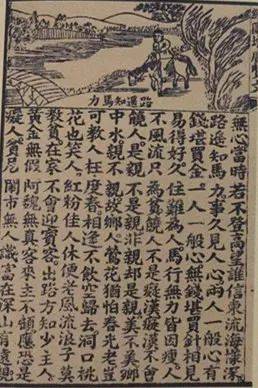 路遙知馬力
無心當時若不登高望誰信東流海洋深
路遙知馬力事久見人心兩人一般心有
錢堪買金一人一般心無錢堪買針相見
易得好久住難為人馬行無力皆因瘦人
不風流只為貧饒人不是癡漢癡漢不會
饒人是親不是親非親却是親美不美鄉
中水親不親故鄉人鶯花猶怕春光老豈
可教人枉度春相逢不飲空歸去洞口桃
花也笑人紅粉佳人休便老風流浪子莫
教貧在家不會迎賓客出路方知少主人
黃金無假阿魏無真客來主不顧應恐是
癡人貧居鬧市無人識富在深山有遠親